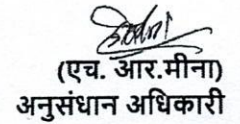 (एच. आर.मीना)
अनुसंधान अधिकारी